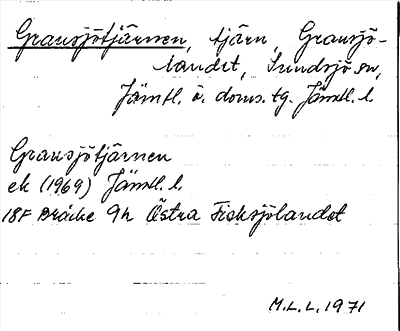 Gransjötjärnen, tjärn, Gransjö-
landet, Sundsjö sn,
Jämtl. ö. doms. tg. Jämtl. l.
Gransjötjärnen
ek (1969) Jämtl. l.
18F Bräcke 9h Östra Fisksjölandet
M.L.L. 1971